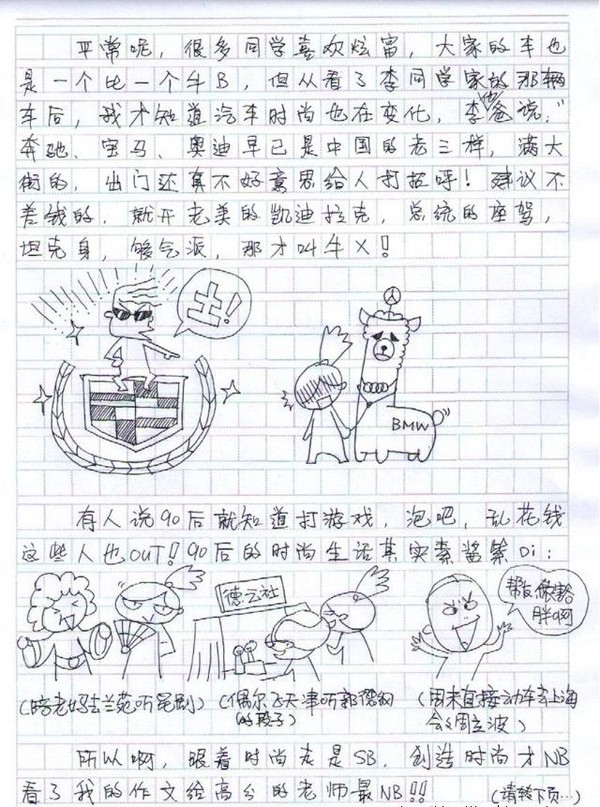 平常呢，很多同学喜欢炫富，大家的车也
是一个比一个牛B，但从看了李同学家的那辆
车后，我才知道汽车时尚也在变化，李他爸说，"
奔驰、宝马、奥迪早已是中国的老三样，满大
街的，出门还真不好意思给人打招呼！建议不
差钱的，就开老美的凯迪拉克，总统的座驾，
坦克身，够气派，那才叫牛X！
土！
BMW
有人说90后就知道打游戏，泡吧，乱花钱
这些人也OUT！90后的时尚生活其实素
德云社
帮我
胖啊
(陪老妈去兰苑听昆剧)
(偶尔飞天津听郭德纲
的段子)
(周末直接动车去上海
会会周立波)
所以啊，跟着时尚走是SB，创造时尚才NB
看了我的作文给高分的老师最NB!!
(请转下页…)